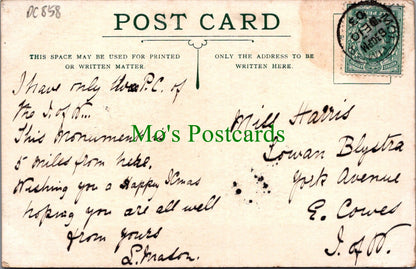 DC 858
POST CARD
THIS SPACE MAY BE USED FOR PRINTED
OR WRITTEN MATTER.
ONLY THE ADDRESS TO BE
WRITTEN HERE.
I have only this P.C. of
the I. of W.
This Monument is
5 miles from here.
Wishing you a Happy Xmas
hoping you are all well
from yours
L. Mason.
Mo's Postcards
Miss Harris
Lowan Blystra
York Avenue
E. Cowes
I. of W.